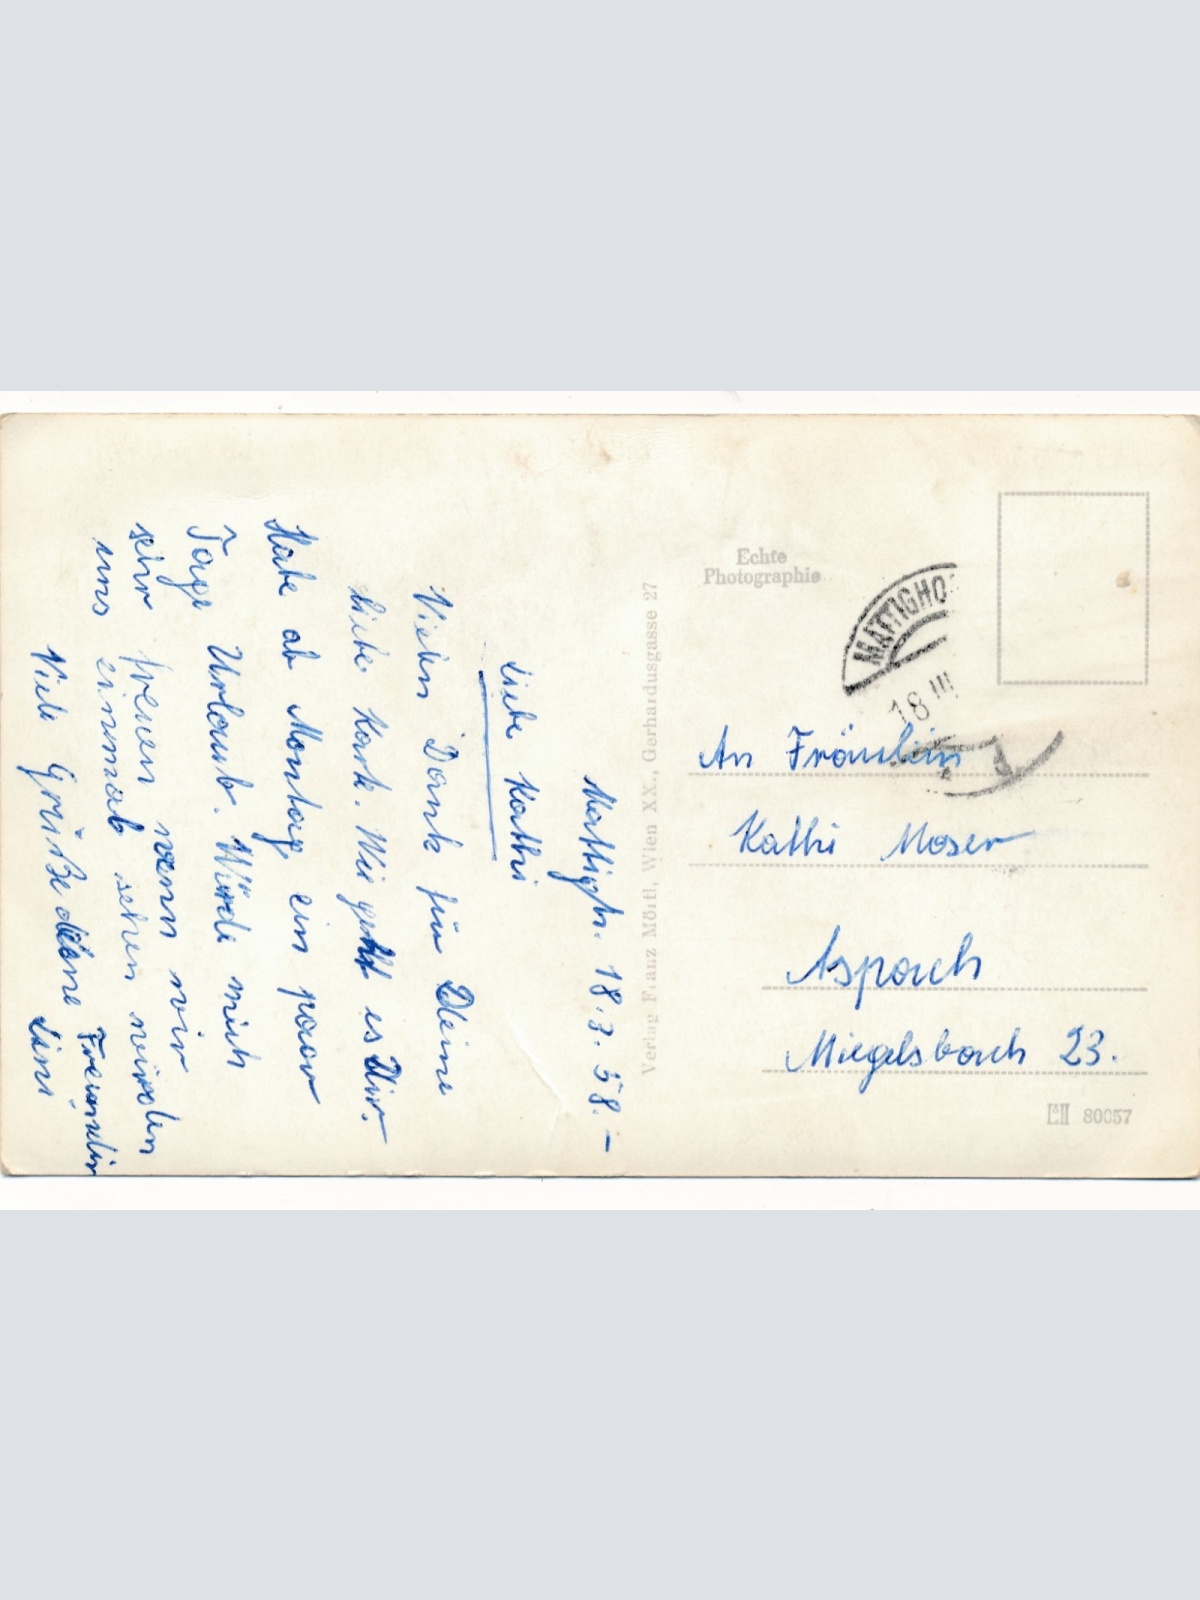 Mattigh. 18.3.58.-
Liebe Kathi
Vielen Dank für Deine
liebe Kart. Wie geht es Dir.
Habe ab Montag ein paar
Tage Urlaub. Würde mich
sehr freuen wenn wir
uns einmal sehen würden
Viele Grüße deine Freundin
Lini
Verlag Franz Mörtl, Wien XX., Gerhardusgasse 27
Echte
Photographie
MATTIGHO
18 III
An Fräulein
Kathi Moser
Aspach
Migelsbach 23.
80057